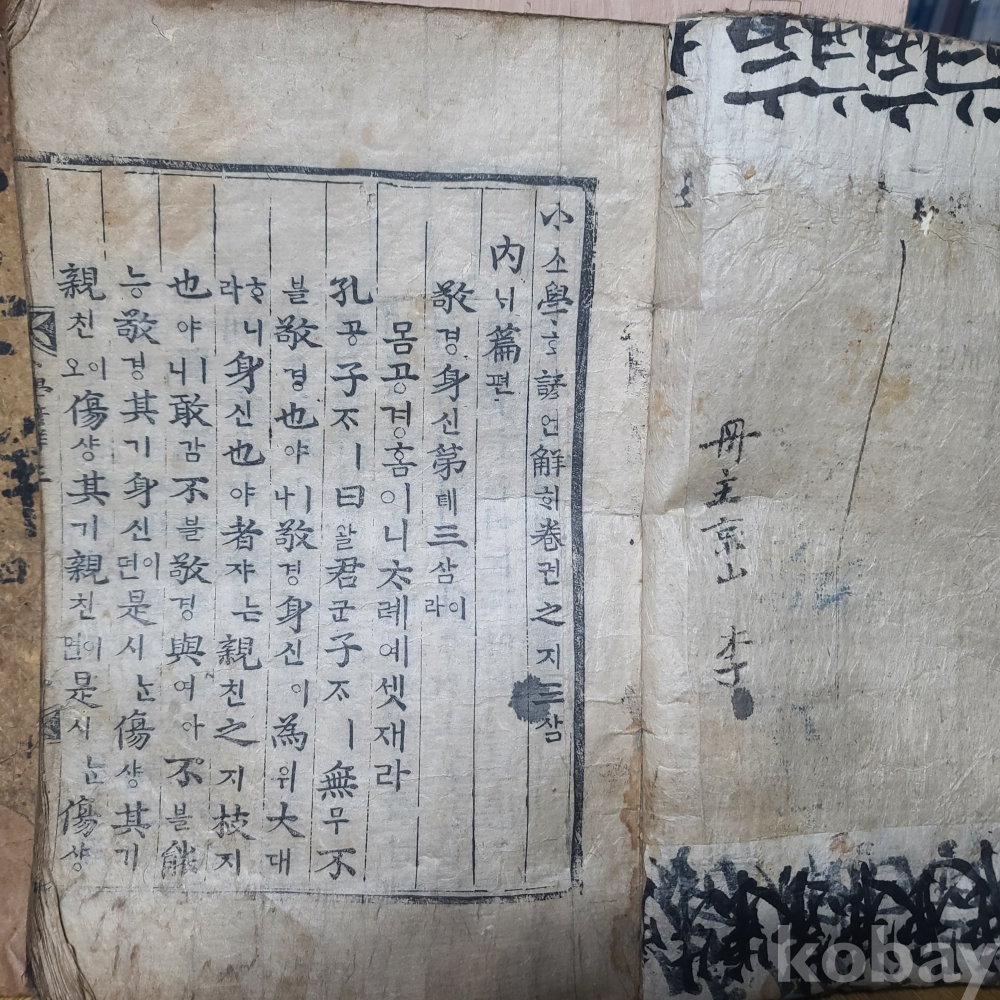 冊主京山 李
小소學ᄒᆞᆨ諺언解ᄒᆡ卷권之지三삼
內ᄂᆡ篇편
敬경身신第뎨三삼이라
몸공경홈이니ᄎᆞ례예셋재라
孔공子ᄌᆞㅣ曰왈君군子ᄌᆞㅣ無무不
블敬경也야ㅣ나敬경身신이為위大대
ᄒᆞ니라身신也야者쟈ᄂᆞᆫ親친之지枝지
也야ㅣ니敢감不블敬경與여아不블能
능敬경其기身신이면是시ᄂᆞᆫ傷샹其기
親친이오傷샹其기親친이면是시ᄂᆞᆫ傷샹
kobay